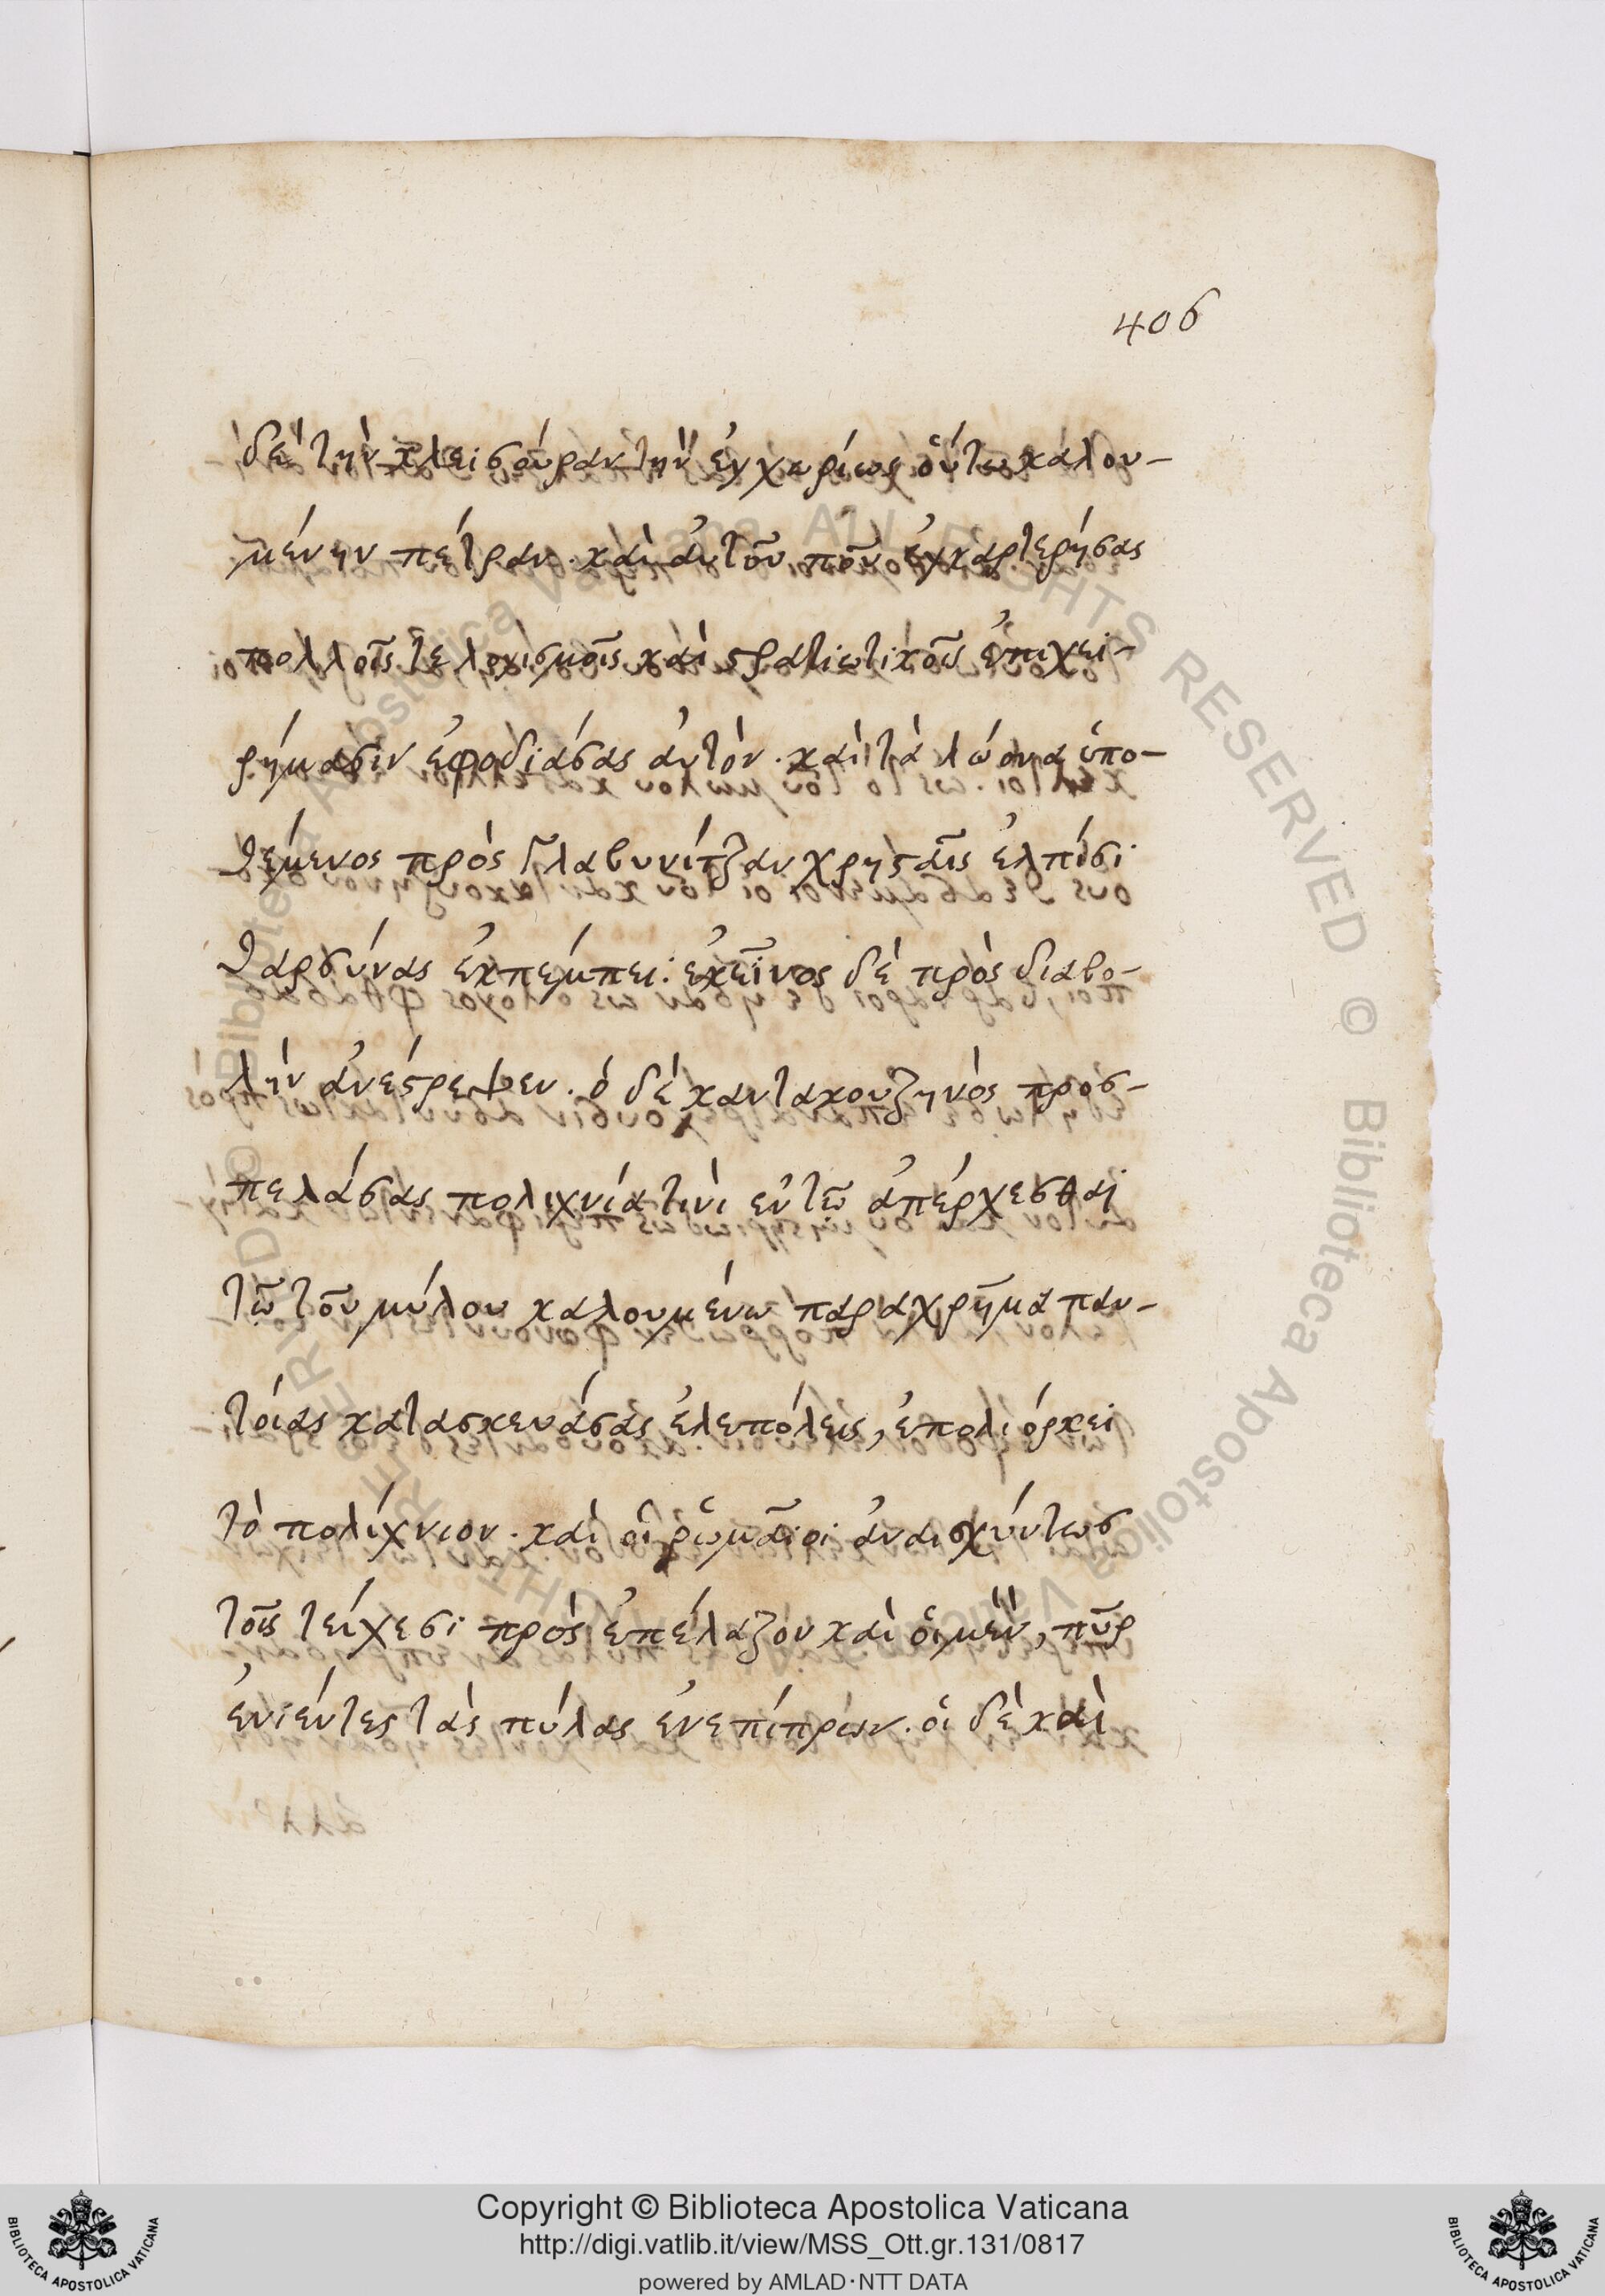 406
δὲ τὴν κλεισούραν τὴν ἐγχωρίως οὕτω καλου-
μένην πέτραν. καὶ αὐτοῦ που ἐγκαρτερήσας
πολλοῖς τε λογισμοῖς καὶ στρατιωτικοῖς ἐπιχει-
ρήμασιν ἐφοδιάσας αὐτόν. καὶ τὰ λώονα ὑπο-
θέμενος πρὸς Γλαβυνίτζαν χρησταῖς ἐλπίσι
θαρσύνας ἐκπέμπει· ἐκεῖνος δὲ πρὸς διαβο-
λὴν ἀνέστρεψεν. ὁ δὲ καντακουζηνὸς προσ-
πελάσας πολιχνία τινὶ ἐν τῷ ἀπέρχεσθαι
τῷ τοῦ μύλου καλουμένω παραχρῆμα παν-
τοίας κατασκευάσας ἐλεπόλεις, ἐπολιόρκει
τὸ πολίχνιον. καὶ οἱ ῥωμαῖοι ἀναισχύντως
τοῖς τείχεσι προσεπέλαζον καὶ οἱ μὲν, πῦρ
ἐνιέντες τὰς πύλας ἐνεπίπρων. οἱ δὲ καὶ
Copyright © Biblioteca Apostolica Vaticana
http://digi.vatlib.it/view/MSS_Ott.gr.131/0817
powered by AMLAD·NTT DATA
BIBLIOTECA APOSTOLICA VATICANA
BIBLIOTECA APOSTOLICA VATICANA